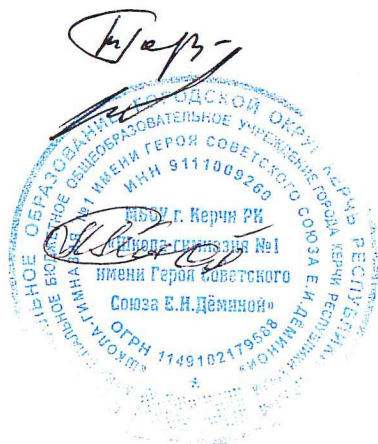 ОБРАЗОВАНИЕ ГОРОДСКОЙ ОКРУГ КЕРЧЬ РЕСПУБЛИКИ
БЮДЖЕТНОЕ ОБЩЕОБРАЗОВАТЕЛЬНОЕ УЧРЕЖДЕНИЕ ГОРОДА КЕРЧИ РЕСПУБЛИКИ
"ШКОЛА-ГИМНАЗИЯ №1 ИМЕНИ ГЕРОЯ СОВЕТСКОГО СОЮЗА Е.И.ДЁМИНОЙ"
ИНН 9111009260
МБОУ г. Керчи РК
«Школа-гимназия №1
имени Героя Советского
Союза Е.И.Дёминой»
ОГРН 1149102179588